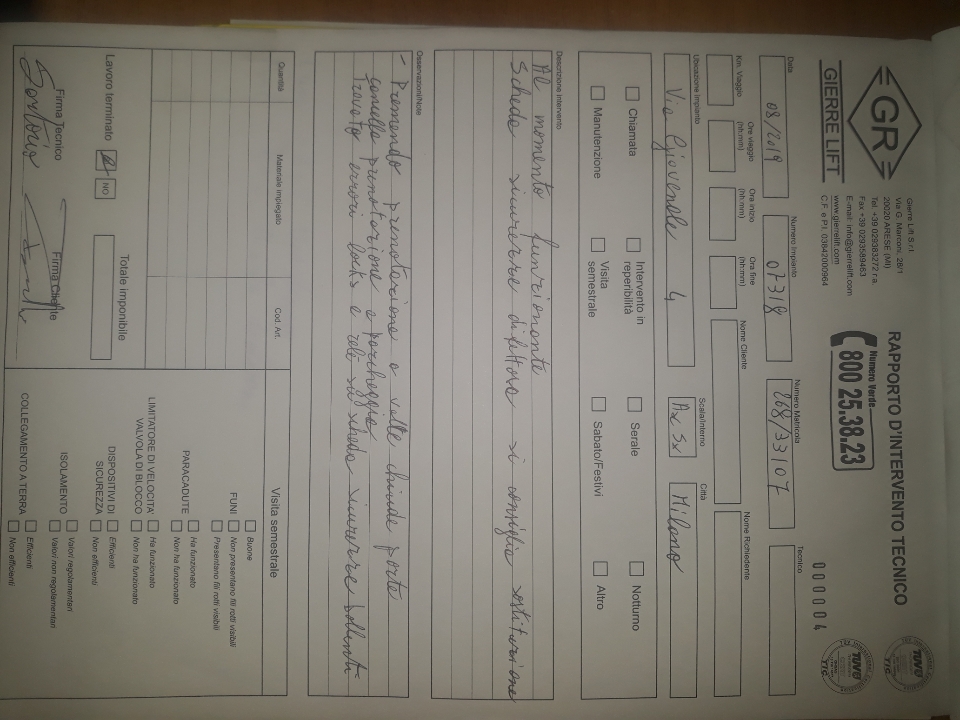 GR
GIERRE LIFT
Gierre Lift S.r.l.
Via G. Marconi, 28/1
20020 ARESE (MI)
Tel. +39 029383272 r.a.
Fax +39 0293589463
E-mail: info@gierrelift.com
www.gierrelift.com
C.F. e P.I. 03842000964
RAPPORTO D'INTERVENTO TECNICO
Numero Verde
800 25.38.23
000004
TUV
Data
08/2019
Numero Impianto
07318
Numero Matricola
268/33107
Tecnico
Km. Viaggio
Ore viaggio
(hh:mm)
Ora inizio
(hh:mm)
Ora fine
(hh:mm)
Nome Cliente
Nome Richiedente
Ubicazione Impianto
Via Giovenale 4
Scala/Interno
Asc Sx
Città
Milano
Chiamata
Intervento in reperibilità
Serale
Notturno
Manutenzione
Visita semestrale
Sabato/Festivi
Altro
Descrizione Intervento
Al momento funzionante
Scheda sicurezze difettosa si consiglia sostituzione
Osservazioni/Note
- Premendo prenotazione a volte chiude porte
cancella prenotazione e parcheggia
Trovato errori locks e relè su scheda sicurezze bollenti
Quantità
Materiale impiegato
Cod. Art.
Visita semestrale
FUNI
Buone
Non presentano fili rotti visibili
Presentano fili rotti visibili
PARACADUTE
Ha funzionato
Non ha funzionato
LIMITATORE DI VELOCITA'
VALVOLA DI BLOCCO
Ha funzionato
Non ha funzionato
DISPOSITIVI DI
SICUREZZA
Efficienti
Non efficienti
ISOLAMENTO
Valori regolamentari
Valori non regolamentari
COLLEGAMENTO A TERRA
Efficienti
Non efficienti
Lavoro terminato
NO
Totale imponibile
Firma Tecnico
Firma Cliente